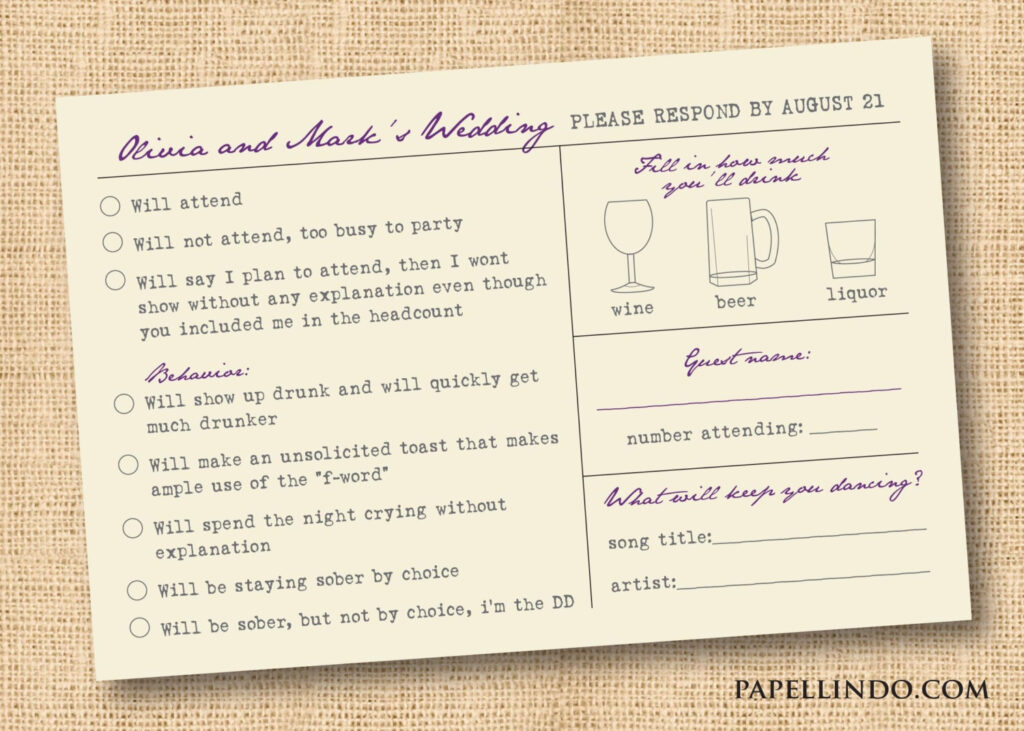 Olivia and Mark's Wedding
PLEASE RESPOND BY AUGUST 21
Will attend
Will not attend, too busy to party
Will say I plan to attend, then I wont
show without any explanation even though
you included me in the headcount
Behavior:
Will show up drunk and will quickly get
much drunker
Will make an unsolicited toast that makes
ample use of the "f-word"
Will spend the night crying without
explanation
Will be staying sober by choice
Will be sober, but not by choice, i'm the DD
Fill in how much
you'll drink
wine
beer
liquor
Guest name:
number attending:
What will keep you dancing?
song title:
artist:
PAPELLINDO.COM